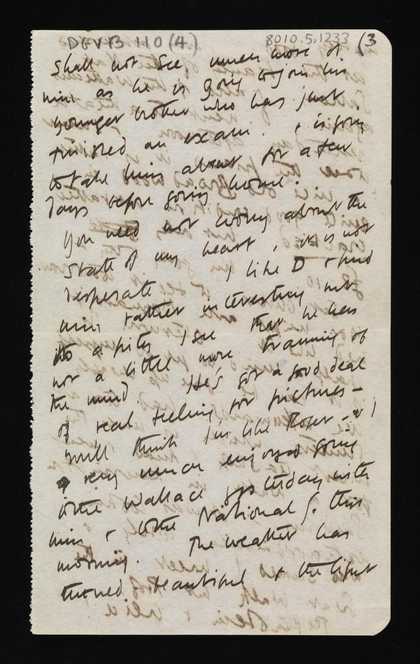 DEVB 110 (4) 8010.5.1233 (3
shall not see much more of
him as he is going to join his
younger brother who has just
finished an exam. & is going
to take him about for a few
days before going home.
You need not worry about the
state of my heart, it is not
desperate. I like D & find
him rather interesting but
it's a pity I see that he has
not a little more training of
the mind. He's got a good deal
of real feeling for pictures –
you'll think I'm like Roger – & I
very much enjoyed going
to the Wallace yesterday with
him & to the National G. this
morning. The weather has
turned beautiful & the light